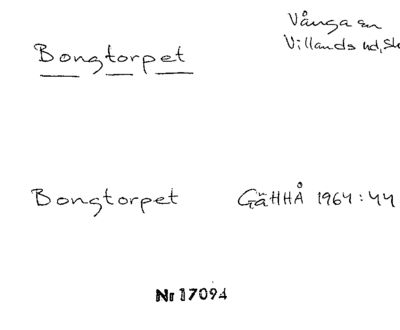 Vånga sn
Villands hd, Sk
Bongtorpet
Bongtorpet GäHHÅ 1964:44
Nr 17094